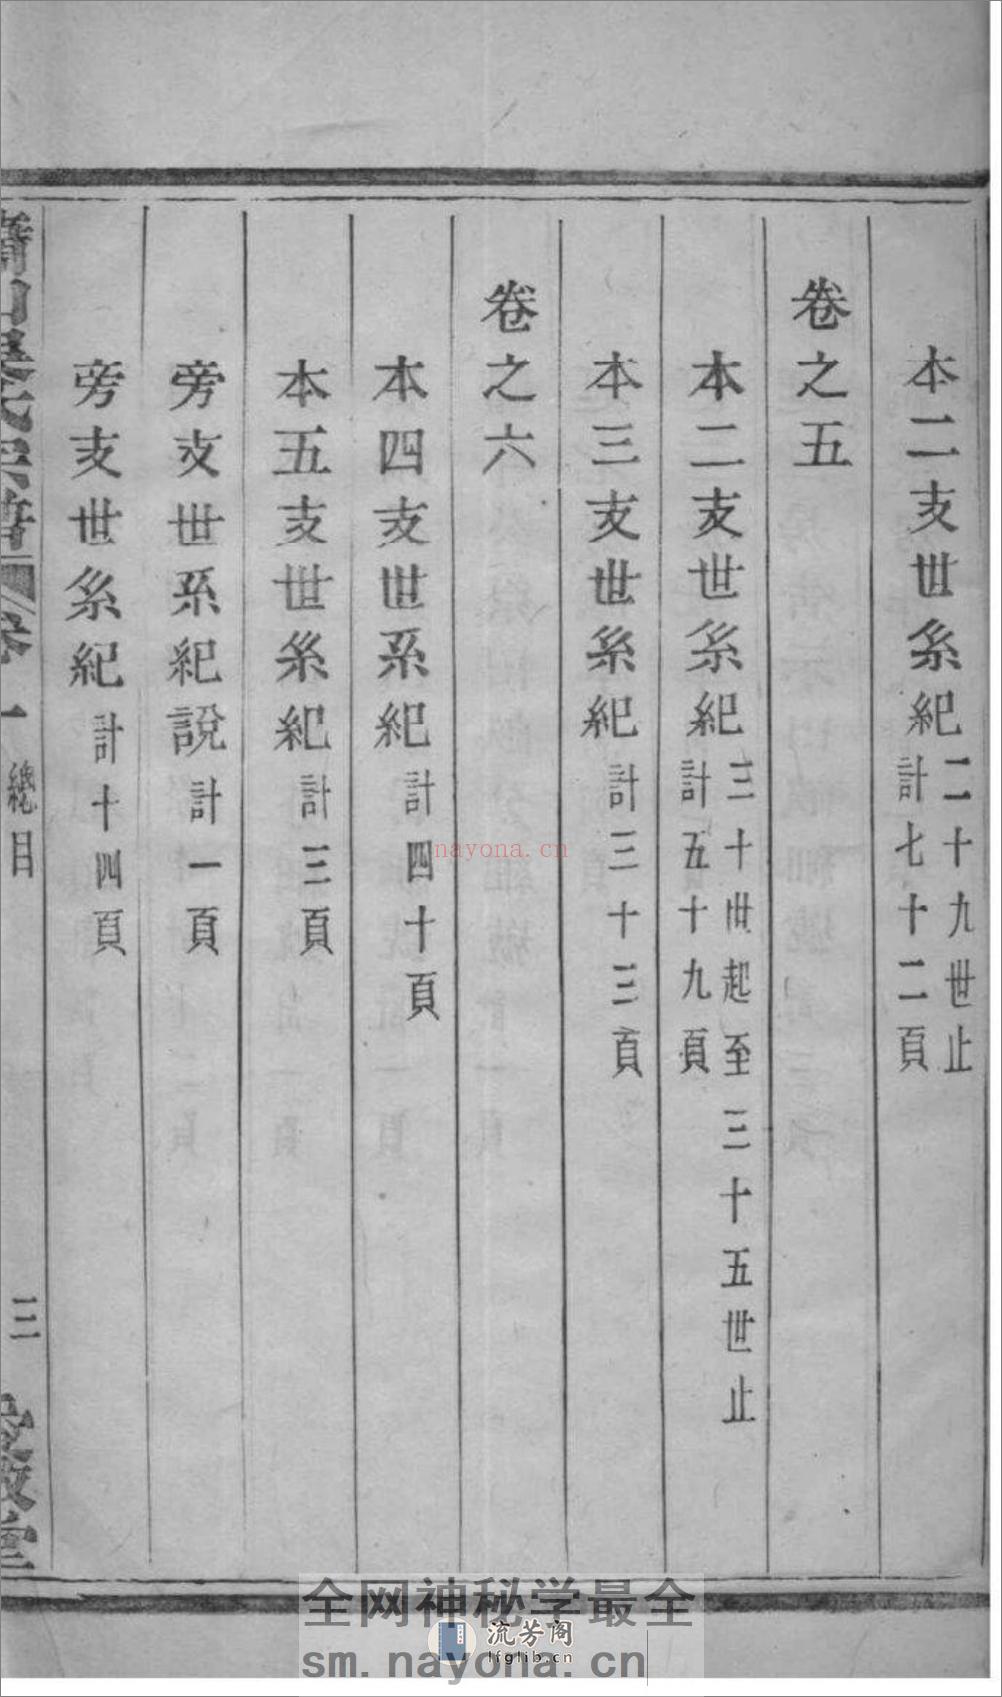 本二支世系紀二十九世止計七十二頁
卷之五
本二支世系紀三十世起至三十五世止計五十九頁
本三支世系紀計三十三頁
卷之六
本四支世系紀計四十頁
本五支世系紀計三頁
旁支世系紀說計一頁
旁支世系紀計十四頁
山氏宗譜 卷一 總目 三
nayona.cn
全网神秘学最全
流芳阁
lfglib.cn
sm.nayona.cn